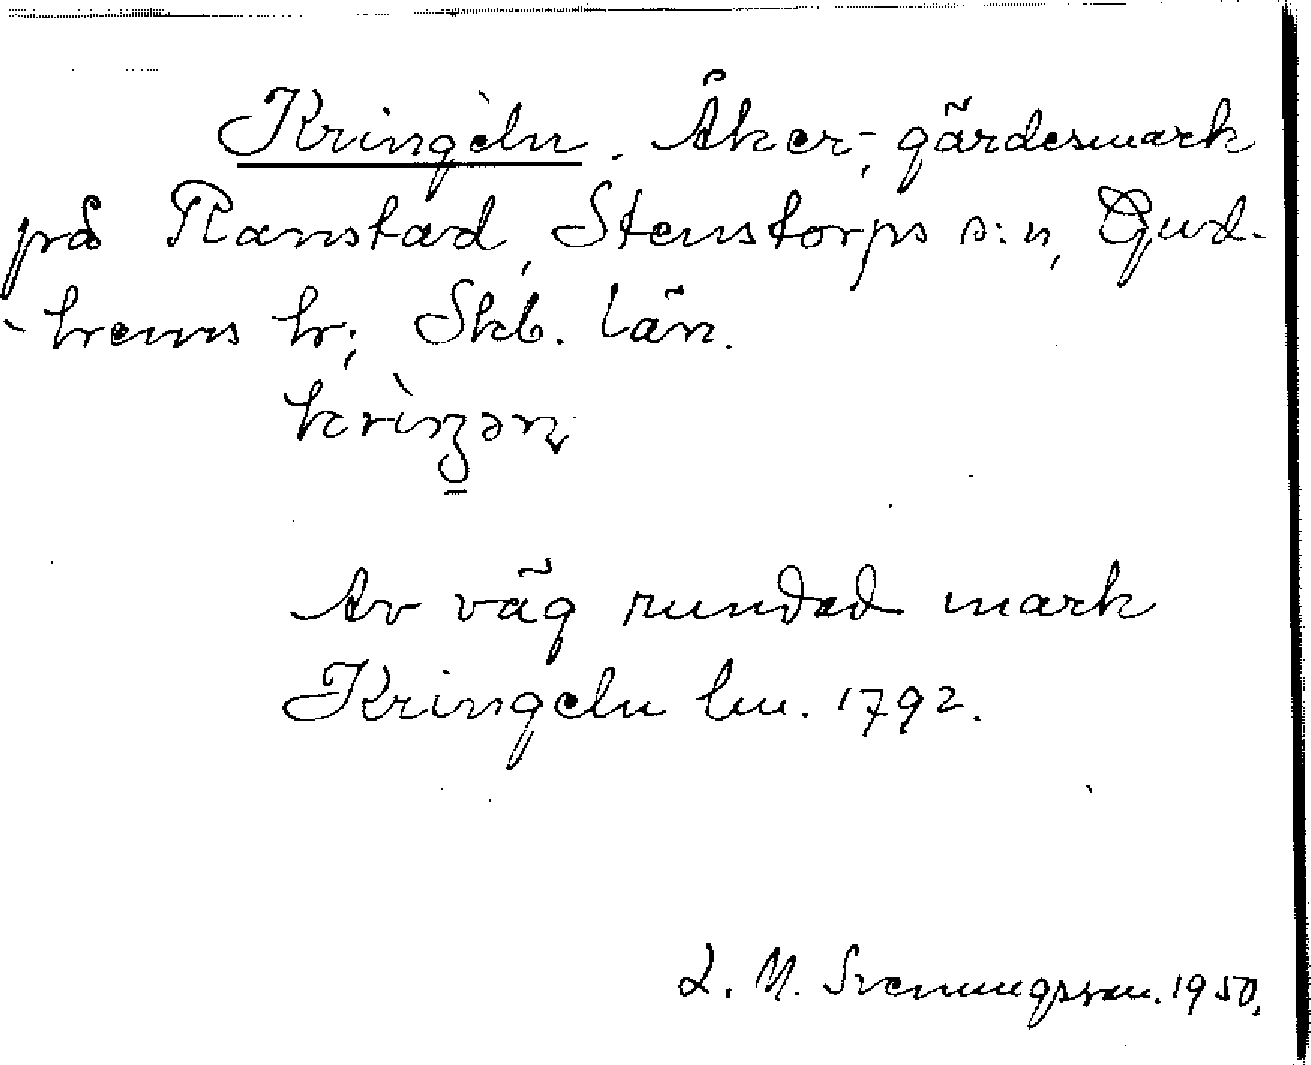 Kringèln. Åker-, gärdesmark
på Ranstad, Stenstorps s:n, Gud-
-hems hr; Skb. län.
Av väg rundad mark
Kringeln lm. 1792.
L. M. Svenungsson. 1950.